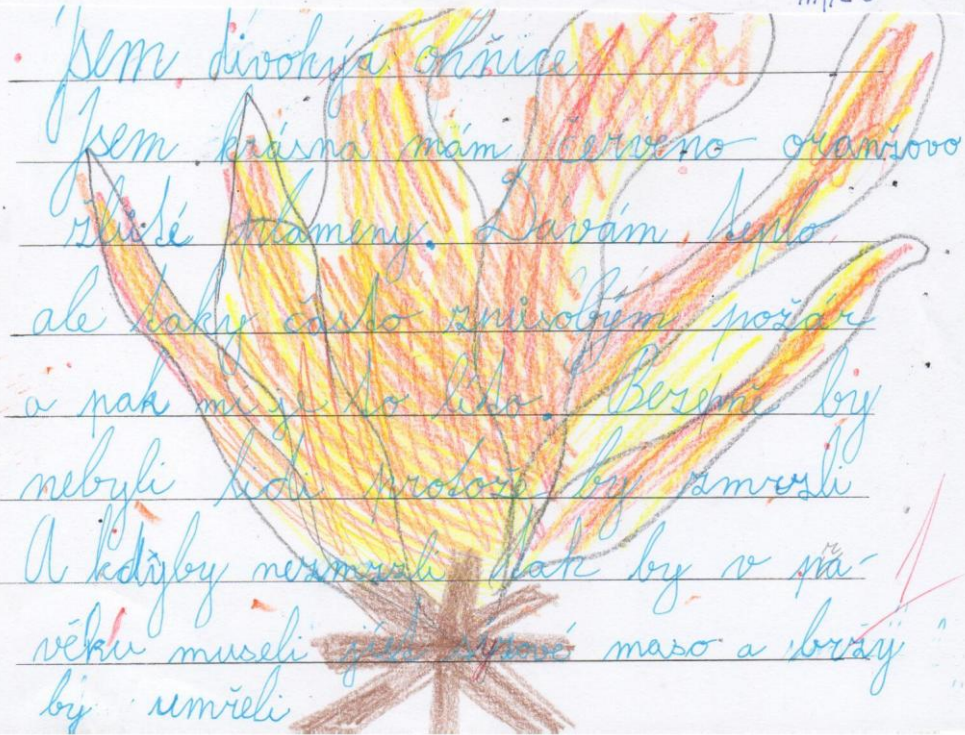 Jsem divoká ohnice
Jsem krásná mám červeno oranžovo
žluté plameny. Dávám teplo
ale taky často způsobým požár
a pak mi je to líto. Bezemě by
nebyli lidi protože by zmrzli
A kdyby nezmrzli tak by v pra-
věku museli jíst syrové maso a brzy
by umřeli